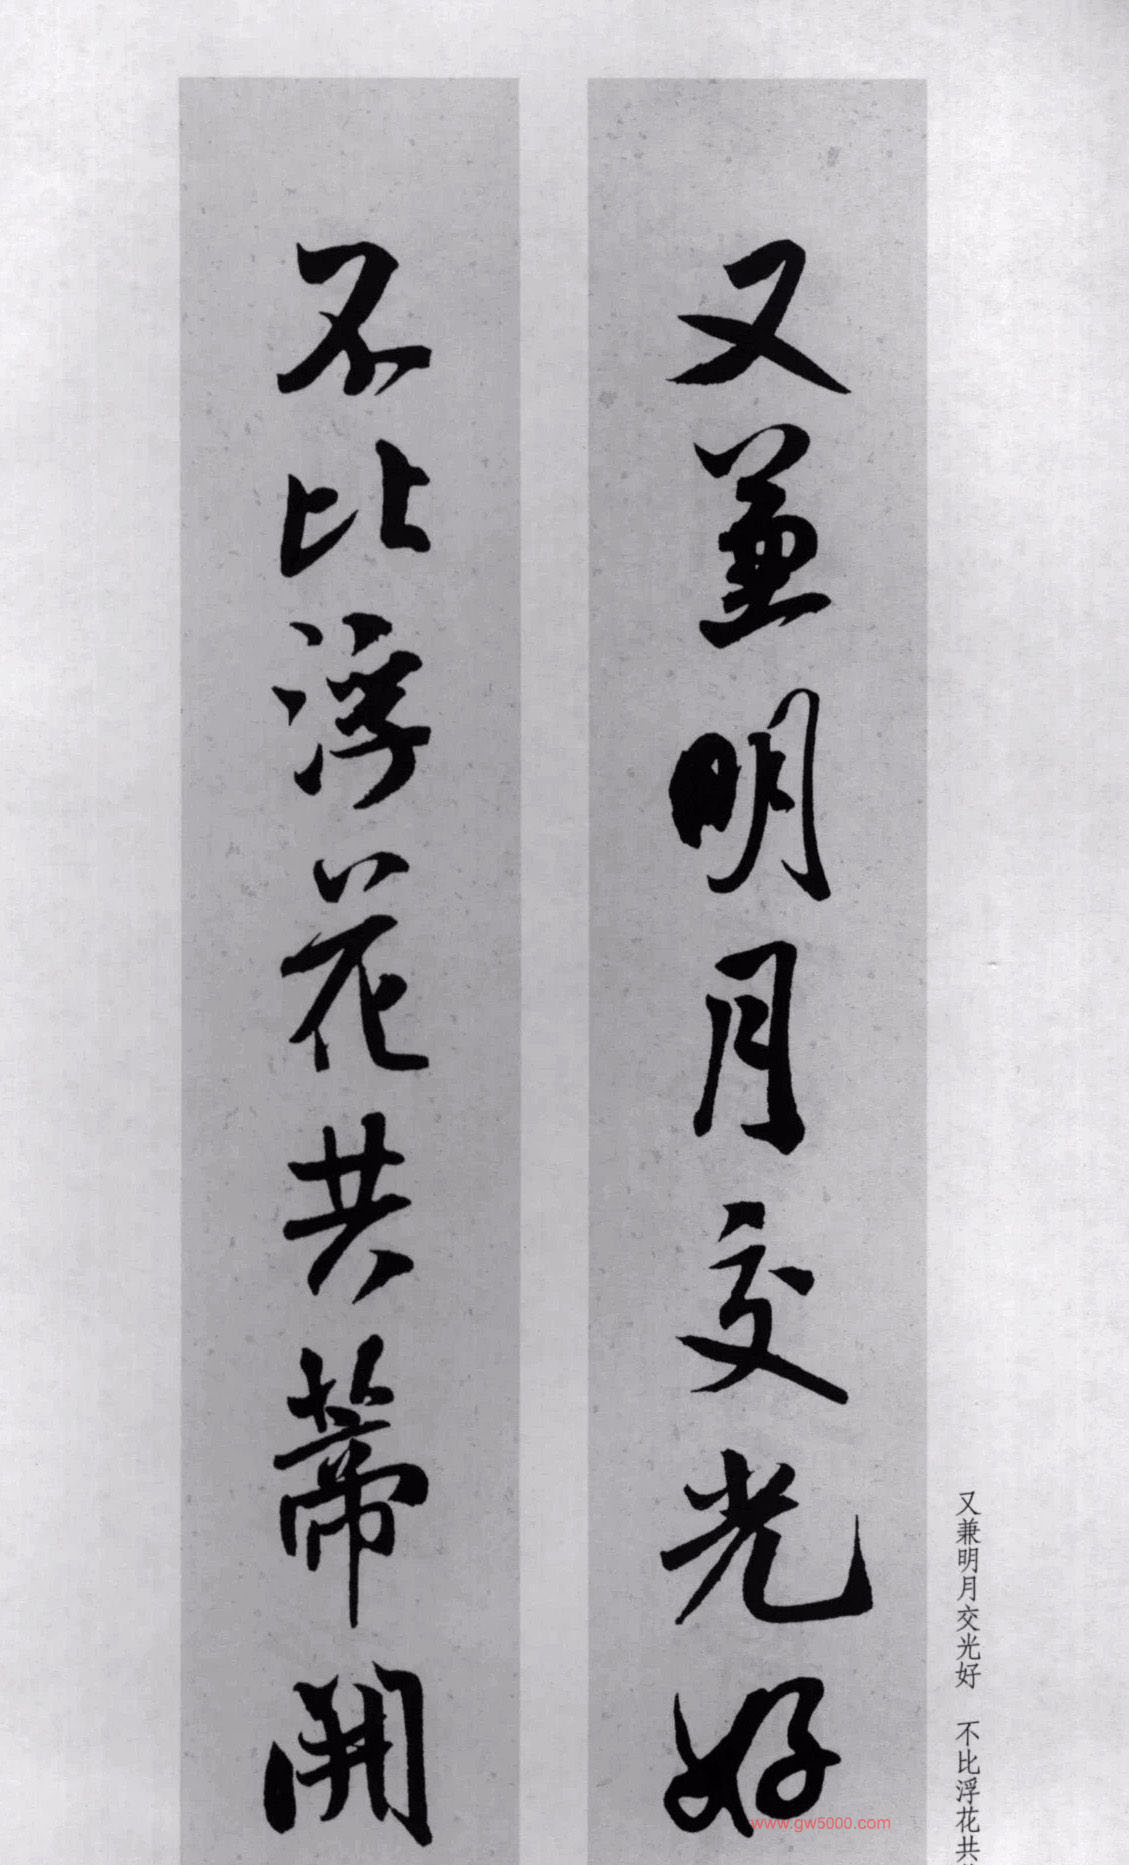 又兼明月交光好
不比浮花共蒂開
又兼明月交光好　不比浮花共
www.gw5000.com